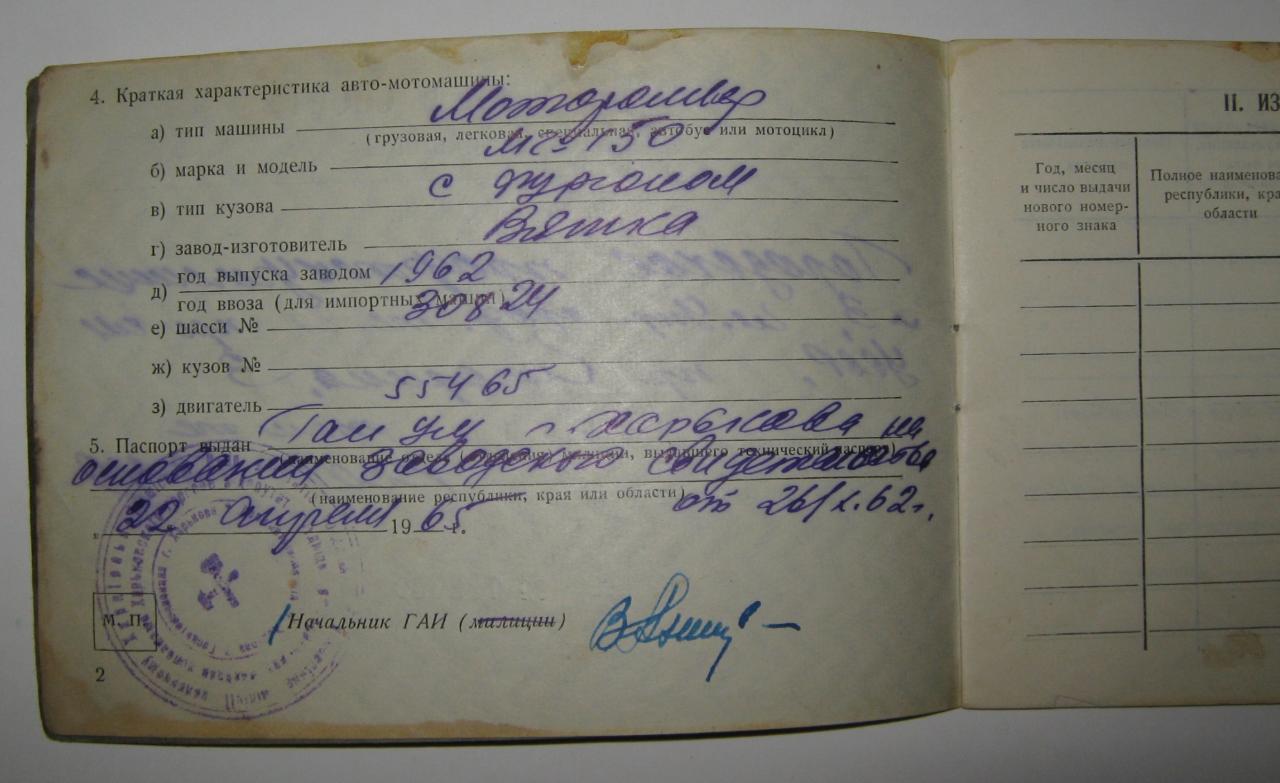 4. Краткая характеристика авто-мотомашины:
а) тип машины Мотороллер
(грузовая, легковая, специальная, автобус или мотоцикл)
б) марка и модель МГ-150
в) тип кузова с фургоном
г) завод-изготовитель Вятка
д) год выпуска заводом 1962
год ввоза (для импортных машин)
е) шасси № 30824
ж) кузов №
з) двигатель 55465
5. Паспорт выдан Гаи г. Харькова на
(наименование отдела милиции, выдавшего технический паспорт)
основании заводского свидетельства
(наименование республики, края или области)
от 26/X.62г.
„22„ апреля 1965 г.
М. П.
Начальник ГАИ (милиции)
2
II. ИЗ
Год, месяц
и число выдачи
нового номер-
ного знака
Полное наименова
республики, кра
области